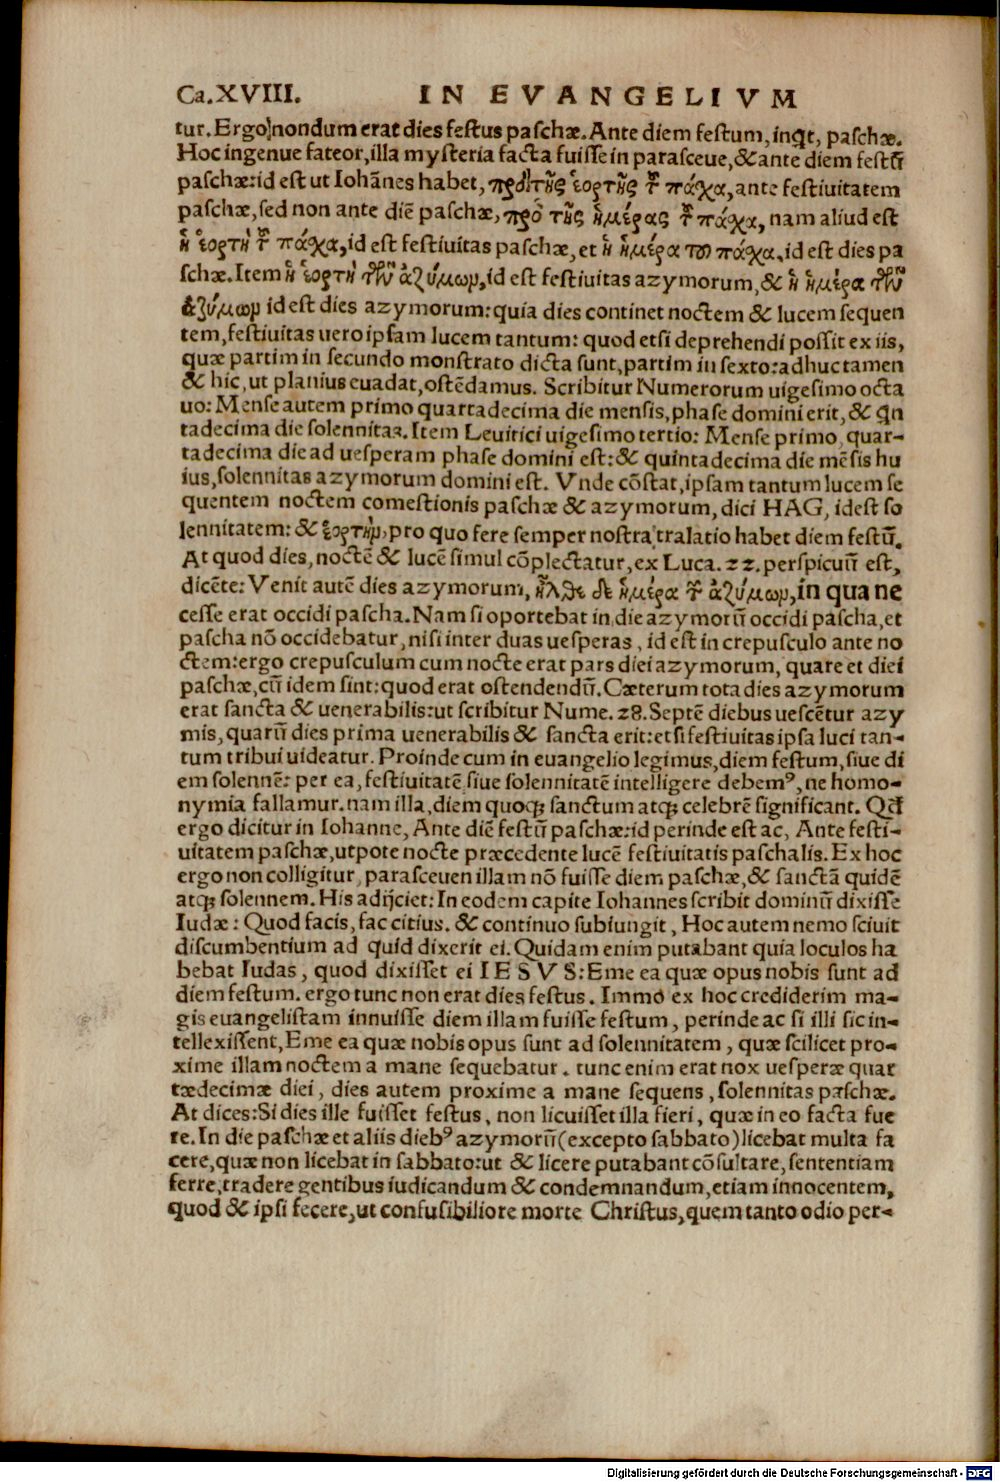 Ca.XVIII. IN EVANGELIVM
tur. Ergo nondum erat dies festus paschæ. Ante diem festum, inqt, paschæ.
Hoc ingenue fateor, illa mysteria facta fuisse in parasceue, & ante diem festū
paschæ: id est ut Iohānes habet, πρὸ τῆς ἑορτῆς τ͂ πάχα, ante festiuitatem
paschæ, sed non ante diē paschæ, πρὸ τῆς ἡμέρας τ͂ πάχα, nam aliud est
ἡ ἑορτὴ τ͂ πάχα, id est festiuitas paschæ, et ἡ ἡμέρα τȣ πάχα, id est dies pa
schæ. Item ἡ ἑορτὴ τῶν ἀζύμωμ, id est festiuitas azymorum, & ἡ ἡμέρα τῶν
ἀζύμωμ id est dies azymorum: quia dies continet noctem & lucem sequen
tem, festiuitas uero ipsam lucem tantum: quod etsi deprehendi possit ex iis,
quæ partim in secundo monstrato dicta sunt, partim in sexto: adhuc tamen
& hic, ut planius euadat, ostēdamus. Scribitur Numerorum uigesimo octa
uo: Mense autem primo quartadecima die mensis, phase domini erit, & qn
tadecima die solennitas. Item Leuitici uigesimo tertio: Mense primo, quar-
tadecima die ad uesperam phase domini est: & quintadecima die mēsis hu
ius, solennitas azymorum domini est. Vnde cōstat, ipsam tantum lucem se
quentem noctem comestionis paschæ & azymorum, dici HAG, idest so
lennitatem: & ἑορτὴμ, pro quo fere semper nostra tralatio habet diem festū.
At quod dies, noctē & lucē simul cōplectatur, ex Luca. 22. perspicuū est,
dicēte: Venit autē dies azymorum, ἦλθε δὲ ἡμέρα τ͂ ἀζύμωμ, in qua ne
cesse erat occidi pascha. Nam si oportebat in die azymorū occidi pascha, et
pascha nō occidebatur, nisi inter duas uesperas, id est in crepusculo ante no
ctem: ergo crepusculum cum nocte erat pars diei azymorum, quare et diei
paschæ, cū idem sint: quod erat ostendendū. Cæterum tota dies azymorum
erat sancta & uenerabilis: ut scribitur Nume. 28. Septē diebus uescētur azy
mis, quarū dies prima uenerabilis & sancta erit: et si festiuitas ipsa luci tan-
tum tribui uideatur. Proinde cum in euangelio legimus, diem festum, siue di
em solennē: per ea, festiuitatē siue solennitatē intelligere debemꝰ, ne homo-
nymia fallamur. nam illa, diem quoqꝫ sanctum atqꝫ celebrē significant. Qđ
ergo dicitur in Iohanne, Ante diē festū paschæ: id perinde est ac, Ante festi-
uitatem paschæ, utpote nocte præcedente lucē festiuitatis paschalis. Ex hoc
ergo non colligitur, parasceuen illam nō fuisse diem paschæ, & sanctā quidē
atqꝫ solennem. His adijciet: In eodem capite Iohannes scribit dominū dixisse
Iudæ: Quod facis, fac citius. & continuo subiungit, Hoc autem nemo sciuit
discumbentium ad quid dixerit ei. Quidam enim putabant quia loculos ha
bebat Iudas, quod dixisset ei IESVS: Eme ea quæ opus nobis sunt ad
diem festum. ergo tunc non erat dies festus. Immo ex hoc crediderim ma-
gis euangelistam innuisse diem illam fuisse festum, perinde ac si illi sic in-
tellexissent, Eme ea quæ nobis opus sunt ad solennitatem, quæ scilicet pro-
xime illam noctem a mane sequebatur. tunc enim erat nox uesperæ quar
tædecimæ diei, dies autem proxime a mane sequens, solennitas paschæ.
At dices: Si dies ille fuisset festus, non licuisset illa fieri, quæ in eo facta fue
re. In die paschæ et aliis diebꝰ azymorū (excepto sabbato) licebat multa fa
cere, quæ non licebat in sabbato: ut & licere putabant cōsultare, sententiam
ferre, tradere gentibus iudicandum & condemnandum, etiam innocentem,
quod & ipsi fecere, ut confusibiliore morte Christus, quem tanto odio per-
Digitalisierung gefördert durch die Deutsche Forschungsgemeinschaft - DFG